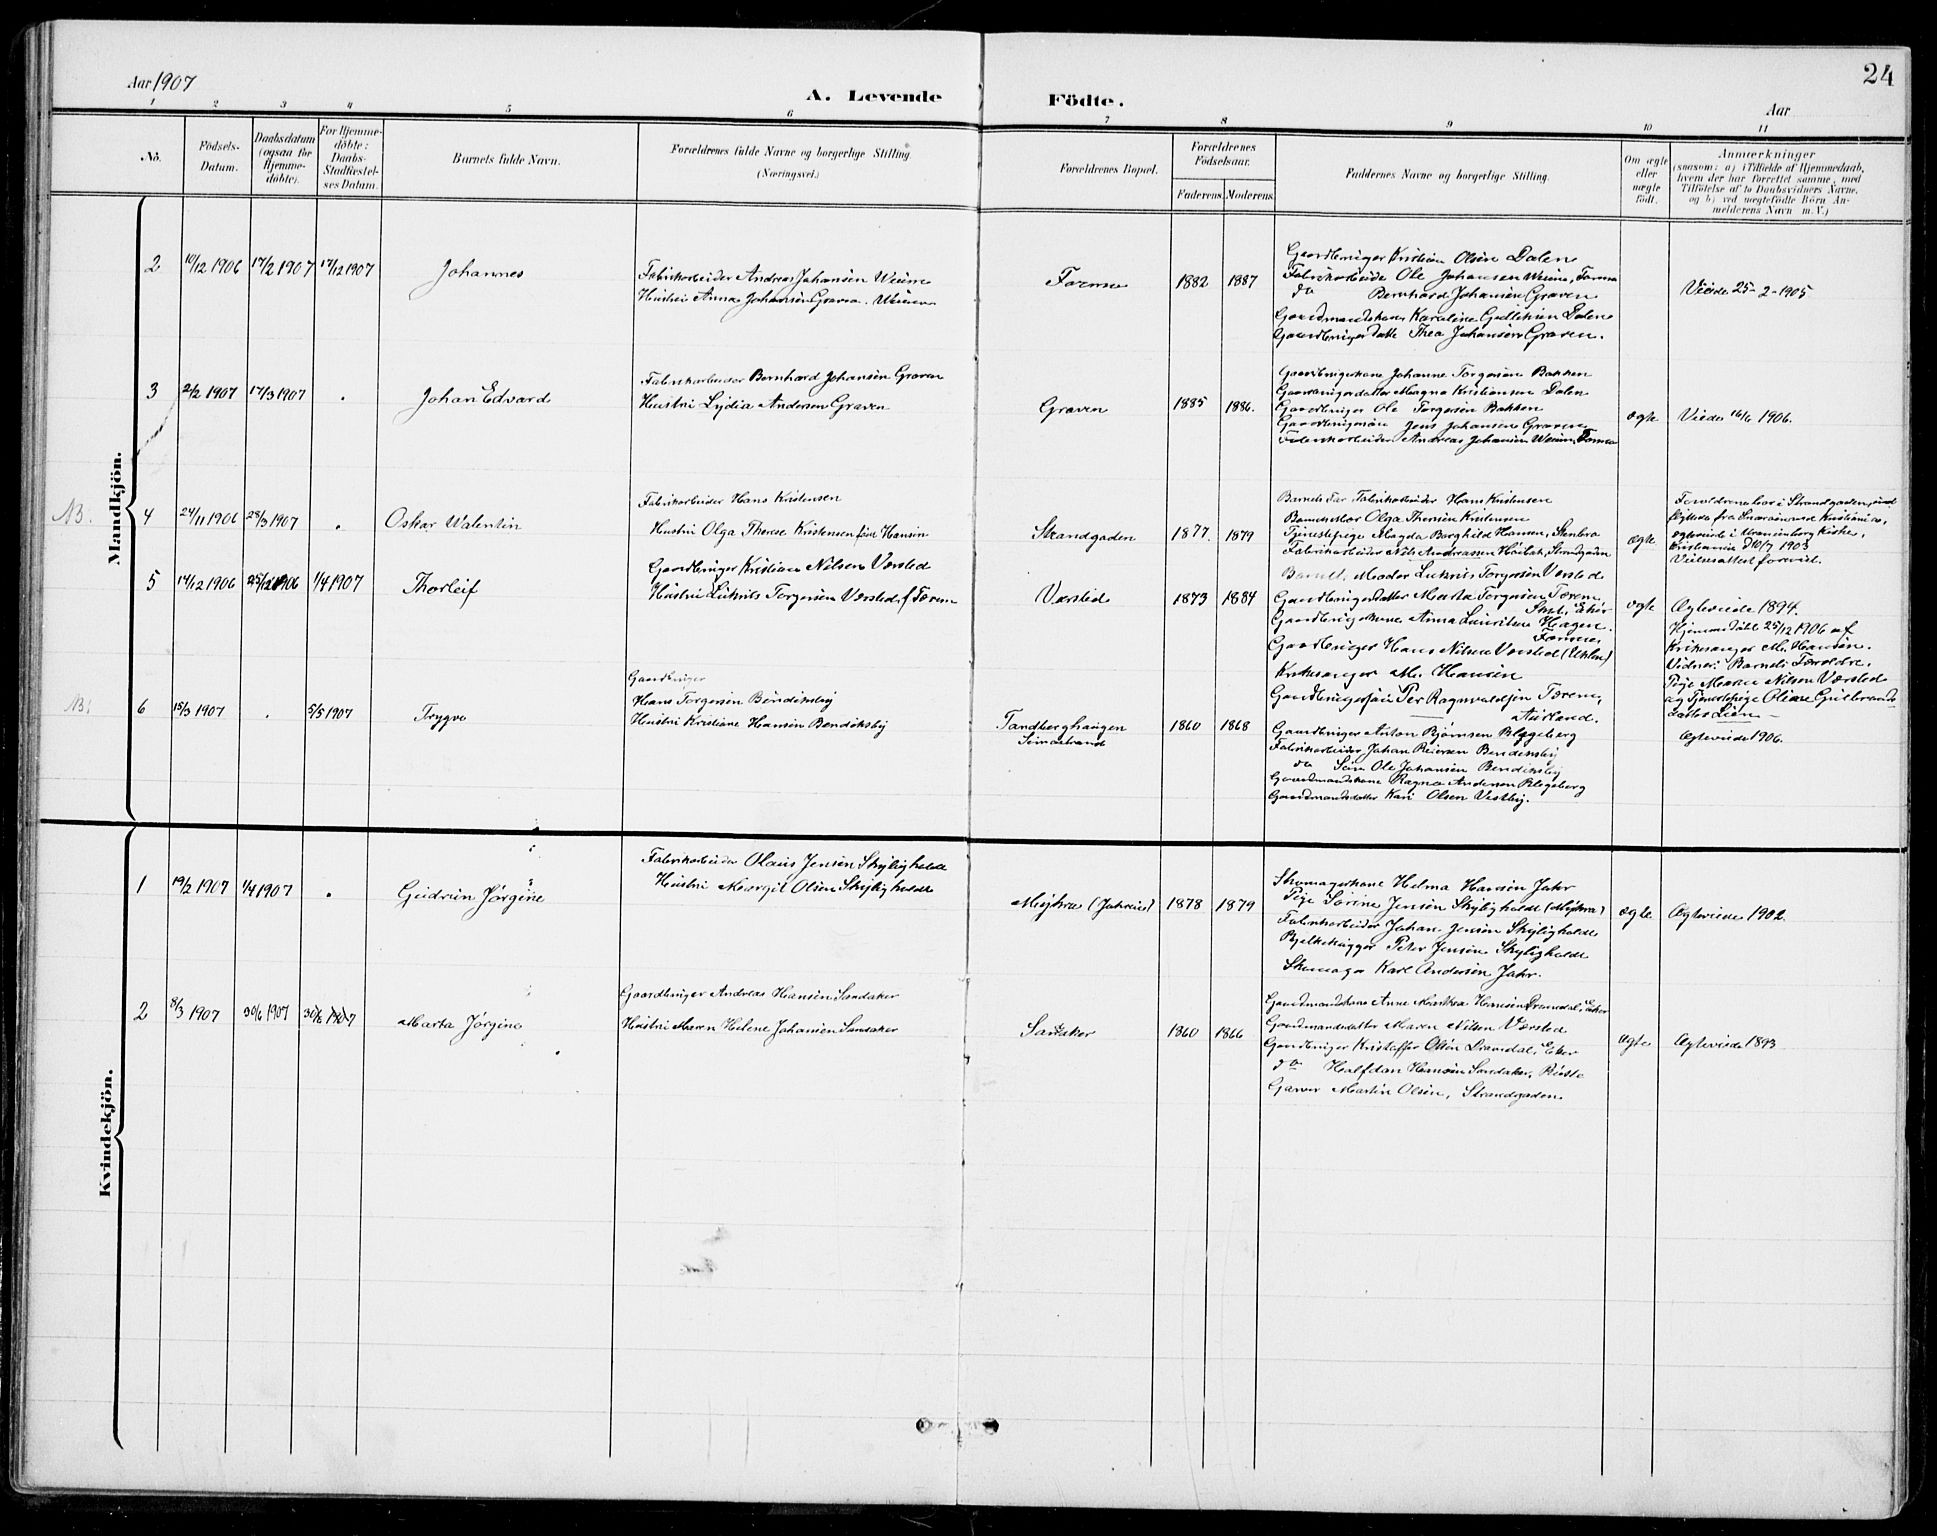 24
Aar 1907
A. Levende Födte.
Aar
1 2 3 4 5 6 7 8 9 10 11
No.
Födsels-
Datum.
Daabsdatum
(ogsaa for
Hjemme-
döbte).
For Hjemme-
döbte:
Daabs-
Stadfæstel-
ses Datum.
Barnets fulde Navn.
Forældrenes fulde Navne og borgerlige Stilling.
(Næringsvei.)
Forældrenes Bopæl.
Forældrenes
Födselsaar.
Faderens. Moderens.
Faddernes Navne og borgerlige Stilling.
Om ægte
eller
uægte
födt.
Anmærkninger
(saasom: a) i Tilfælde af Hjemmedaab,
hvem der har forrettet samme, med
Tilföielse af to Daabsvidners Navne,
og b) ved uægtefödte Börn An-
melderens Navn m. V.)
Mandkjön.
2
10/12 1906
17/2 1907
17/2 1907
Johannes
Fabrikarbeider Andreas Johansen
Hustru Anna Johansen Graven
1882
1887
Gaardbruger Kristian Olsen Dalen
Fabrikarbeide Ole Johansen
do Bernhard Johansen Graven
Gaardmandskone Karoline Gulliksen Dalen
Gaardbruger datte Thea Johansen Graven.
Viede 25-2-1905
3
2/2 1907
17/3 1907
Johan Edvard
Fabrikarbeider Bernhard Johansen Graven
Hustru Lydia Andersen Graven
Graven
1885
1886.
Gaardbrugerkone Johanne Torgersen Bakken
Gaardbrugerdatter Magna Kristiansen Dalen
Gaardbruger Ole Torgersen Bakken
Gaardbrugersøn Jens Johansen Graven
Fabrikarbeider Andreas Johansen
ægte
Viede 16/6 1906.
NB.
4
24/11 1906
28/3 1907
Oskar Walentin
Fabrikarbeider Hans Kristensen
Hustru Olga Therese Kristensen før Hansen
Strandgaden
1877.
1879
Barnets Far Fabrikarbeider Hans Kristensen
Barnets Mor Olga Therese Kristensen
Tjenestepige Magda Borghild Hansen, Stenbro
Fabrikarbeider Nils Andreassen Strandgaden
ægte
Forældrene bor i Strandgaden, ind
flyttede fra Kristiania,
ægteviede i Uranienborg Kirke,
Kristiania 1903
Vielsesattest forevist.
5
14/12 1906
25/12 1906
1/4 1907
Thorleif
Gaardbruger Kristian Nilsen Værsted
Hustru Torgersen Værsted f
Værsted
1873
1884
Barnets Moder Torgersen Værsted
Gaardbrugerdatter Marta Torgersen
Gaardbrugerkone Anna Lauritsen Hagen
Gaardbruger Hans Nilsen Værsted
Kirkesanger M. Hansen
Gaardbrugersøn Per Ragnvaldsen
ægte
Ægteviede 1894.
Hjemmedöbt 25/12 1906 af
Kirkesanger M. Hansen.
Vidner: Barnets Forældre,
Pige Maren Nilsen Værsted
og Tjenestepige Oline Gulbrands
datter Lien
NB.
6
15/3 1907
5/5 1907
Trygve
Gaardbruger
Hans Torgersen Bendiksby
Hustru Kristiane Hansen Bendiksby
Tandberghaugen
1860
1868
Gaardbruger Anton Bjørnsen Blegeberg
Fabrikarbeider Johan Reiersen Bendiksby
do Søn Ole Johansen Bendiksby
Gaardmandskone Ragna Andersen Blegeberg
Gaardmandsdatter Kari Olsen Vestby.
Ægteviede 1906.
Kvindekjön.
1
19/2 1907
1/4 1907
Gudrun Jørgine
Fabrikarbeider Olaus Jensen Skjligholdt
Hustru Margit Olsen Skjligholdt
1878
1879
Skomagerkone Helma Hansen Jahr
Pige Sørine Jensen Skjligholdt
Fabrikarbeider Johan Jensen Skjligholdt
Bjelkehugger Peter Jensen Skjligholdt
Skomager Karl Andersen Jahr.
ægte
Ægteviede 1902.
2
8/3 1907
30/6 1907
30/6 1907
Marta Jørgine
Gaardbruger Andreas Hansen Sandaker
Hustru Maren Helene Johansen Sandaker
Sandaker
1860
1866
Gaardmandskone Anne Marthea Hansen Dramdal, Eker
Gaardmandsdatter Maren Nilsen Værsted
Gaardbruger Kristoffer Olsen Dramdal, Eker
do Halfdan Hansen Sandaker,
Garver Martin Olsen, Strandgaden.
ægte
Ægteviede 1893